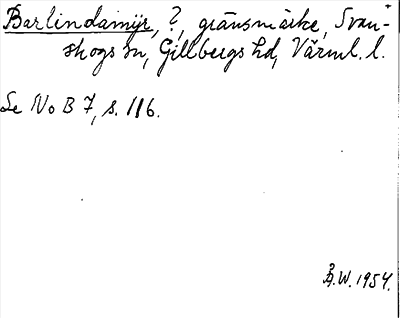 Barlindamýr, ?, gränsmärke, Svan-
skogs sn, Gillbergs hd, Värml. l.
Se NoB 7, s. 116.
B.W. 1954.